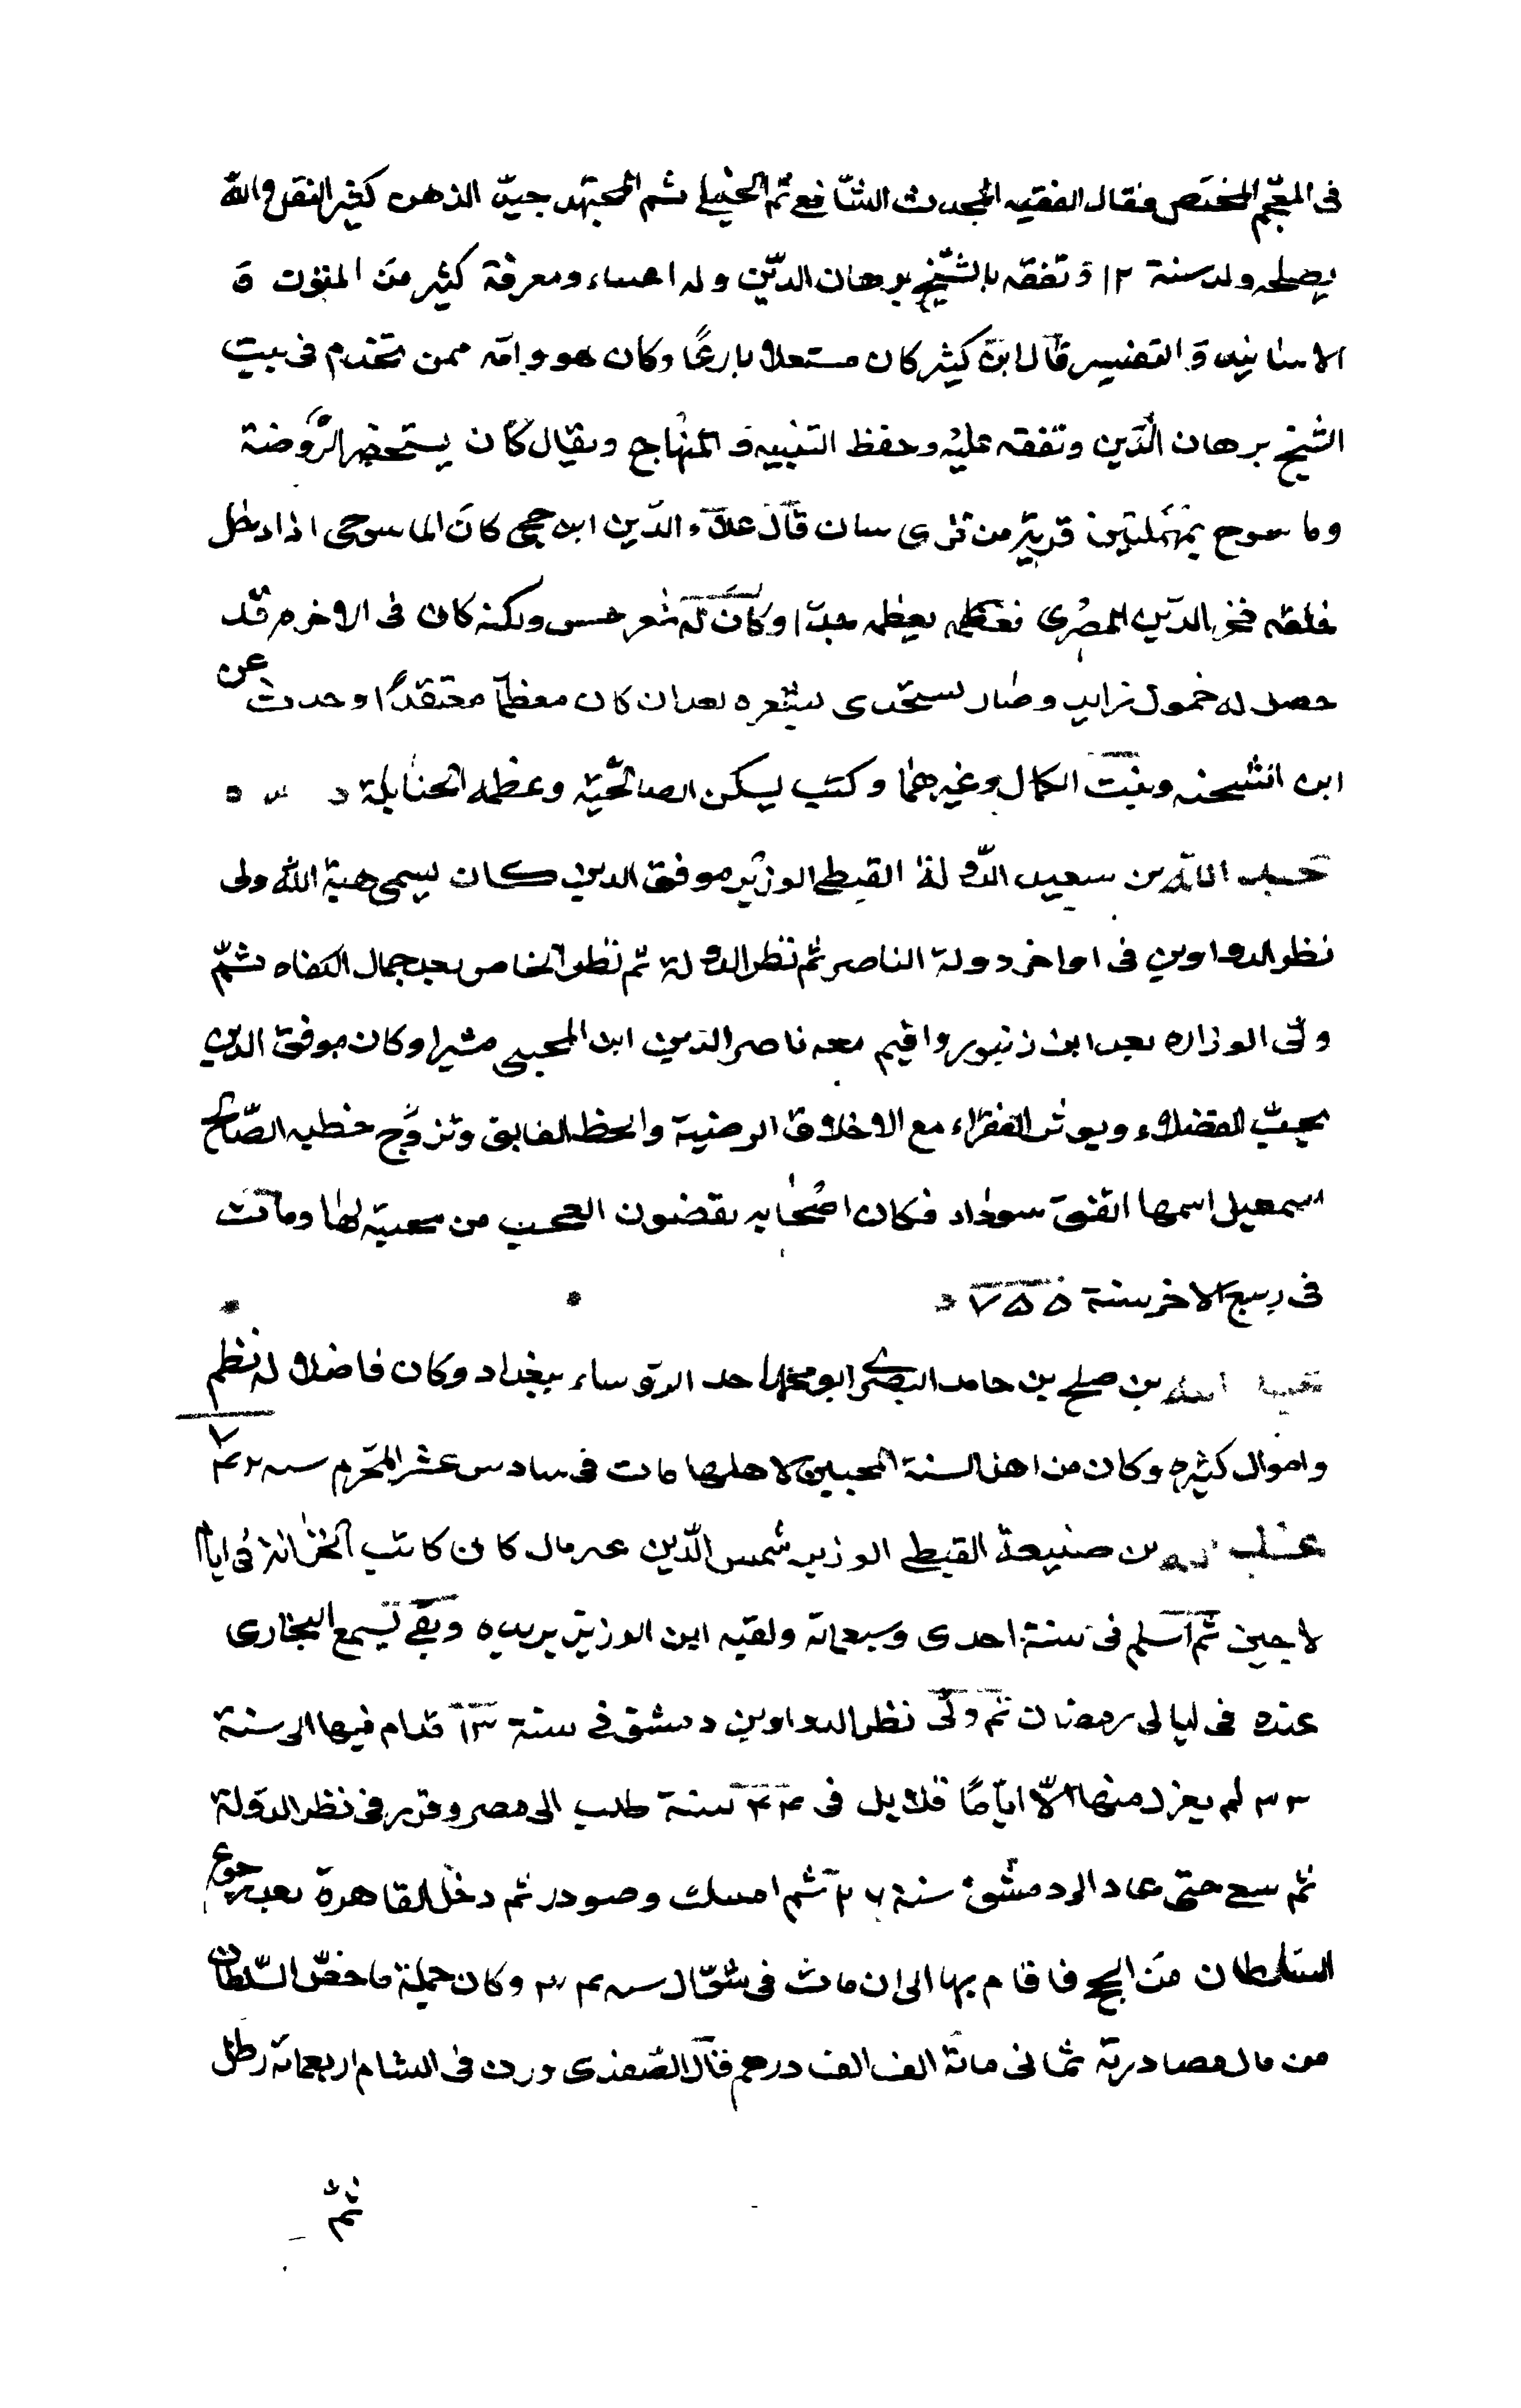 فى المعجم المختص فقال الفقيه المحدث الشافعى ثم الحنبلى ثم المجتهد جيد الذهن كثير النقل والله
يصلحه ولد سنة ١٢ وتفقه بالشيخ برهان الدين وله اعتناء ومعرفة كثير من المتون و
الاسانيد و التفسير قال ابن كثير كان مستعلا بارعًا وكان هو وامه ممن تخدم فى بيت
الشيخ برهان الدين وتفقه عليه وحفظ التنبيه و المنهاج ويقال كان يستحضر الروضة
وما سوح بمهملتين قرية من قرى سان قال علاء الدين ابن حجى كان الما سوحى اذا دخل
خلفه فخر الدين المصرى يعظمه جدا وكان له شعر حسن ولكنه كان فى الاخره قد
حصل له خمول زايد وصار يستجدى بشعره بعد ان كان معظمًا معتقدًا وحدث عن
ابن الشحنه وبنت الكمال وغيرهما وكتب يسكن الصالحية وعظمه الحنابلة
عبد الله بن سعيد الدولة القبطى الوزير موفق الدين كان يسمى هبة الله ولى
نظر الدواوين فى اواخر دولة الناصر ثم نظر الدولة ثم نظر الخاص بعد جمال الكفاه ثم
ولى الوزاره بعد ابن زنبور واقيم معه ناصر الدين ابن المحسنى مشيرا وكان موفق الدين
يحب الفضلاء ويوثر الفقراء مع الاخلاق الرضية والحظ الفايق وتزوج حظيه الصالح
اسمعيل اسمها اتفق سوداء فكان اصحابه يقضون العجب من محبته لها ومات
فى ربيع الاخر سنة ٧٥٥
عبد الله بن صلح بن حامد البصرى ابو محمد احد الروساء ببغداد وكان فاضلا له نظم
واموال كثيره وكان من اهل السنة المحبين لاهلها مات فى سادس عشر المحرم سنه ٧٤٢
عبد الله بن صنيعة القبطى الوزير شمس الدين عبريال كان كاتب الخزانة فى ايام
لاجين ثم اسلم فى سنة احدى وسبعمائة ولقيه ابن الوزير يريده وبقى يسمع البخارى
عنده فى ليالى رمضان ثم ولى نظر الدواوين دمشق فى سنة ١٣ فدام فيها الى سنة
٣٣ لم يعزل منها الا ايامًا قلايل فى ٢٤ سنة طلب الى مصر وقرر فى نظر الدولة
ثم سعى حتى عاد الى دمشق سنة ٢٦ ثم امسك وصودر ثم دخل القاهرة بعد رجوع
السلطان من الحج فاقام بها الى ان مات فى شوال سنه ٣٤ وكان جملة ما خص السلطان
من مال مصادرته ثمانى مائة الف الف درهم قال الصفدى وزن فى الشام اربعمائة رطل
ثم